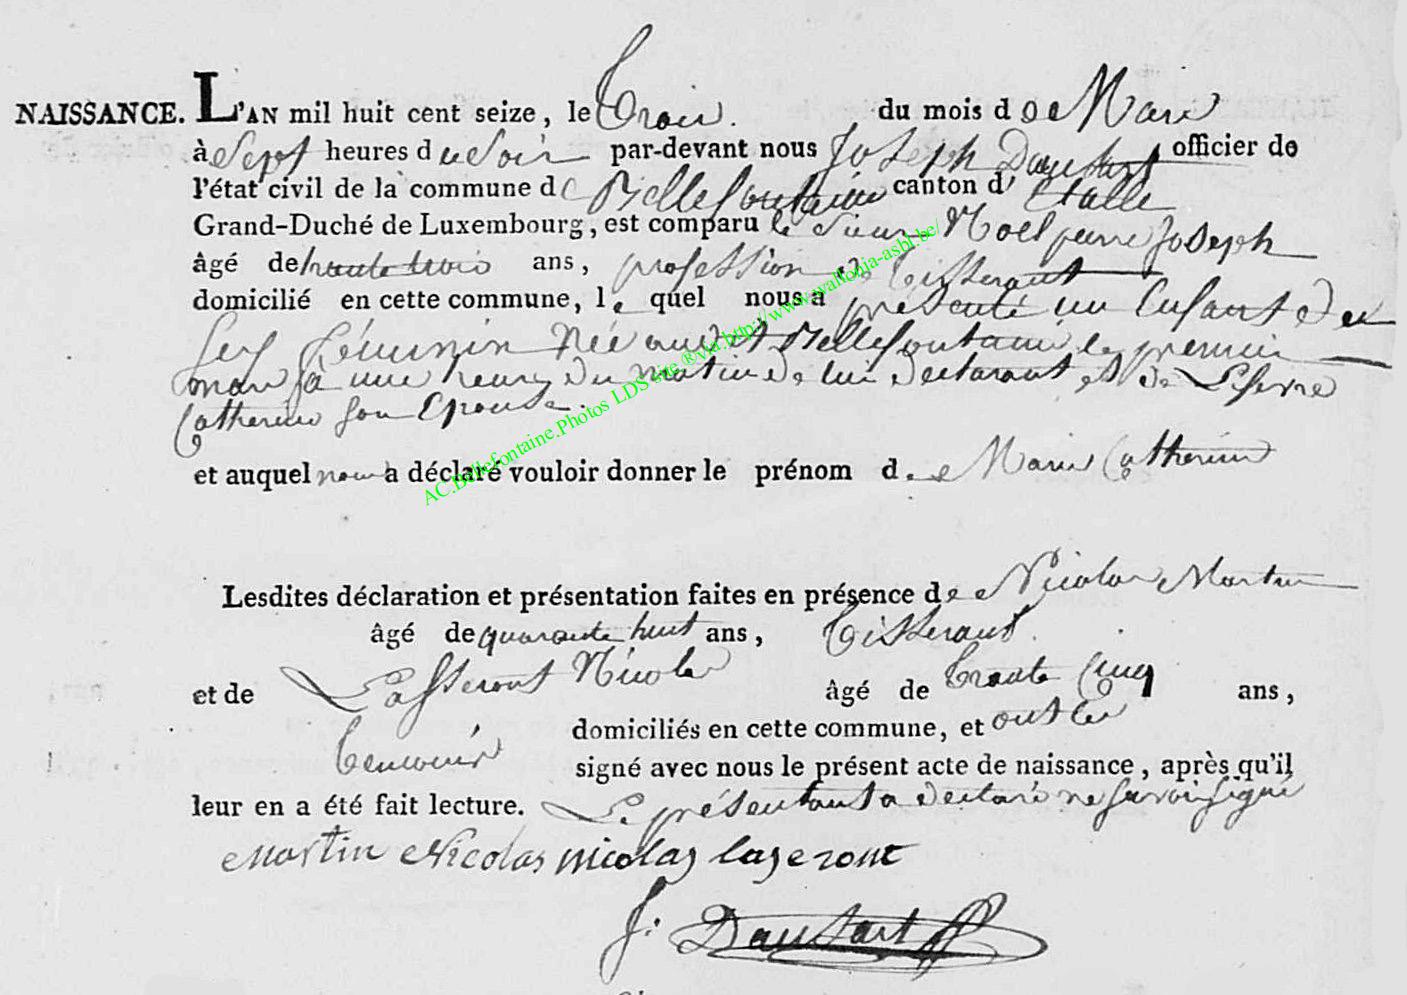 NAISSANCE. L'AN mil huit cent seize, le trois. du mois d de Mars
à Sept heures du Soir par-devant nous Joseph officier de
l'état civil de la commune de Bellefontaine canton d' Etalle
Grand-Duché de Luxembourg, est comparu le Sieur Noel pierre Joseph
âgé de trente trois ans, profession de tisserant
domicilié en cette commune, le quel nous a présenté un Enfant du
Sex féminin Née audit Bellefontaine le premier
mars à une heure du matin de lui declarant et de Lefevre
Catherine son Epouse.
et auquel nous a déclaré vouloir donner le prénom d. de Marie Catherine
Lesdites déclaration et présentation faites en présence de Nicolas Martin
âgé de quarante huit ans, tisserant.
et de Lasseront Nicolas âgé de trente cinq ans,
domiciliés en cette commune, et ont les
temoins signé avec nous le présent acte de naissance, après qu'il
leur en a été fait lecture. Le présentant a declaré ne savoir signé
Martin Nicolas nicolas lageront
J.
AC.Bellefontaine.Photos LDS site ®via.http://www.wallonia-asbl.be/